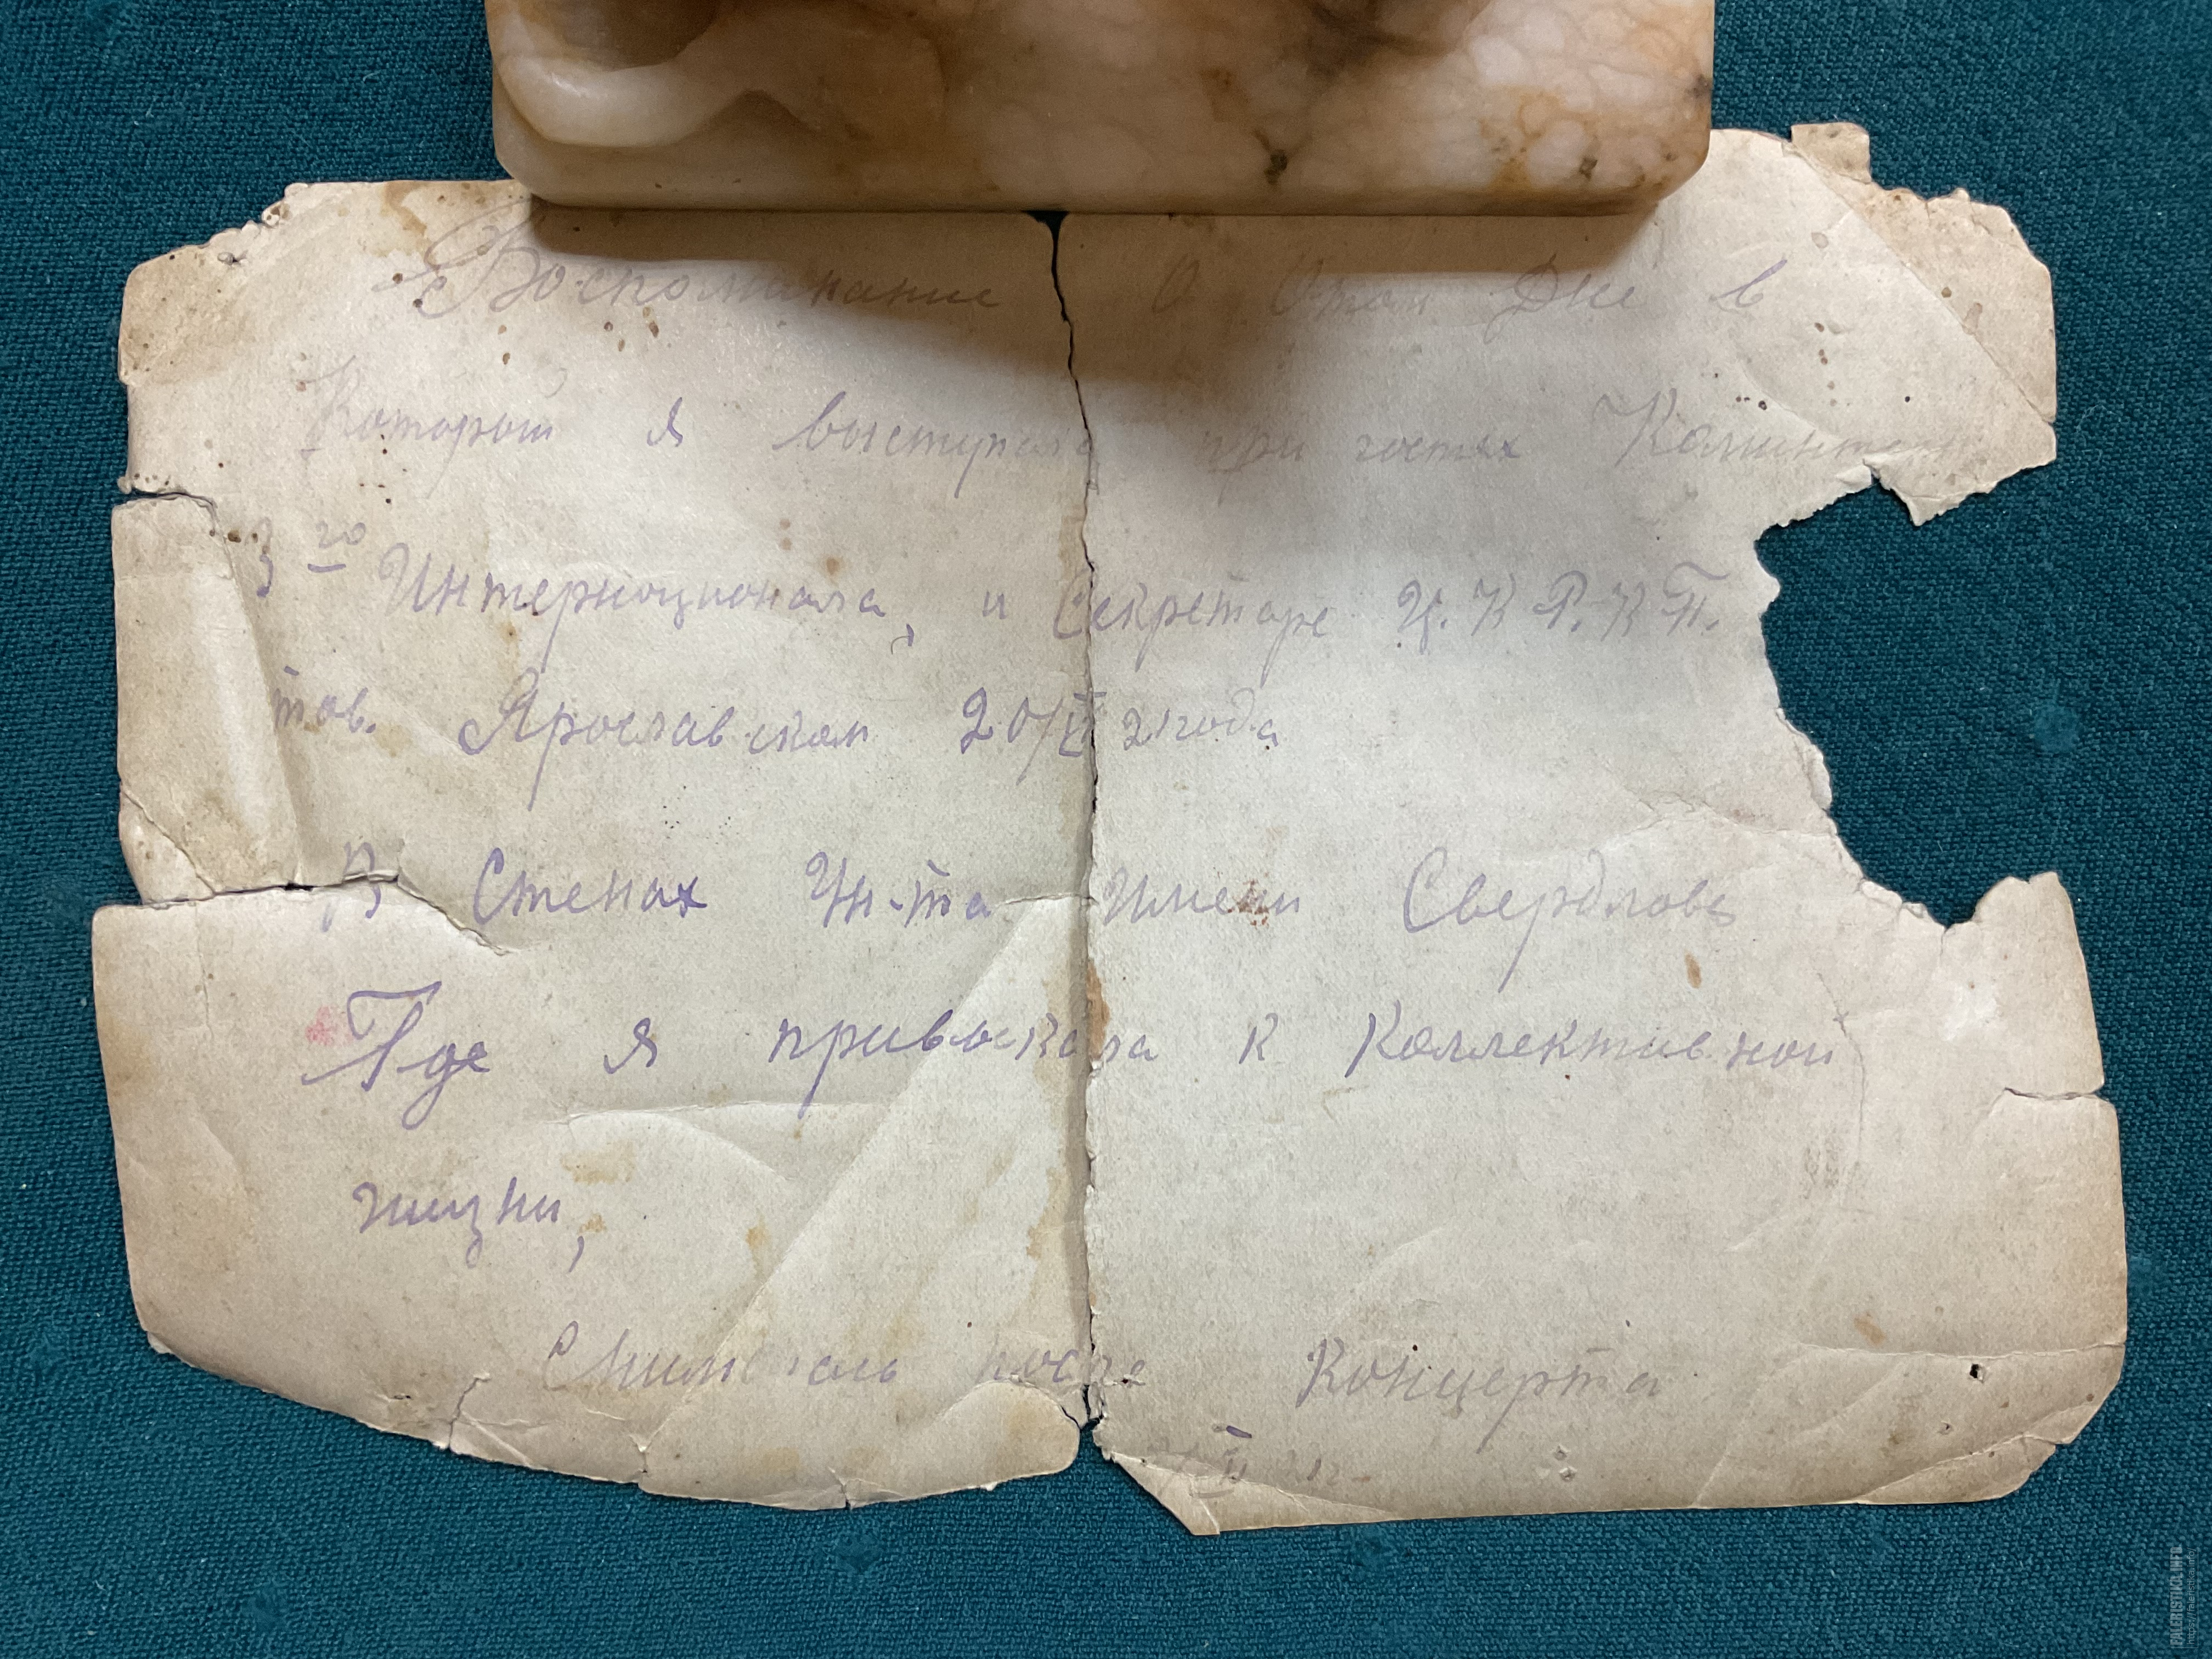 Воспоминание О Этом Дне в
Который я выступала при гостях
3го Интерноционала, и Секретаре Ц.К Р.К П.
тов. Ярославском 20/VI 21 года
В Стенах Ун-та имени Свердлова
Где я привыкала к Коллективной
жизни,
Снималась после Концерта